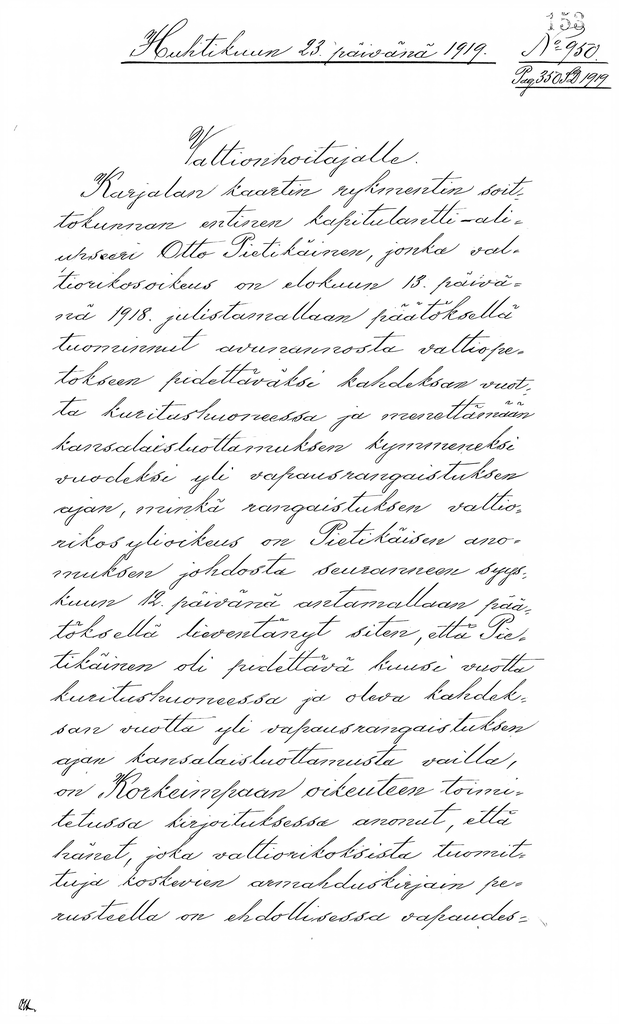 153
Huhtikuun 23. päivänä 1919. No 950.
Pag. 350 SD 1919
Valtionhoitajalle.
Karjalan kaartin rykmentin soit-
tokunnan entinen kapitulantti-ali-
upseeri Otto Pietikäinen, jonka val-
tiorikosoikeus on elokuun 13. päivä-
nä 1918. julistamallaan päätöksellä
tuominnut avunannosta valtiope-
tokseen pidettäväksi kahdeksan vuot-
ta kuritushuoneessa ja menettämään
kansalaisluottamuksen kymmeneksi
vuodeksi yli vapausrangaistuksen
ajan, minkä rangaistuksen valtio-
rikosylioikeus on Pietikäisen ano-
muksen johdosta seuranneen syys-
kuun 12. päivänä antamallaan pää-
töksellä lieventänyt siten, että Pie-
tikäinen oli pidettävä kuusi vuotta
kuritushuoneessa ja oleva kahdek-
san vuotta yli vapausrangaistuksen
ajan kansalaisluottamusta vailla,
on Korkeimpaan oikeuteen toimi-
tetussa kirjoituksessa anonut, että
hänet, joka valtiorikoksista tuomit-
tuja koskevien armahduskirjain pe-
rusteella on ehdollisessa vapaudes-